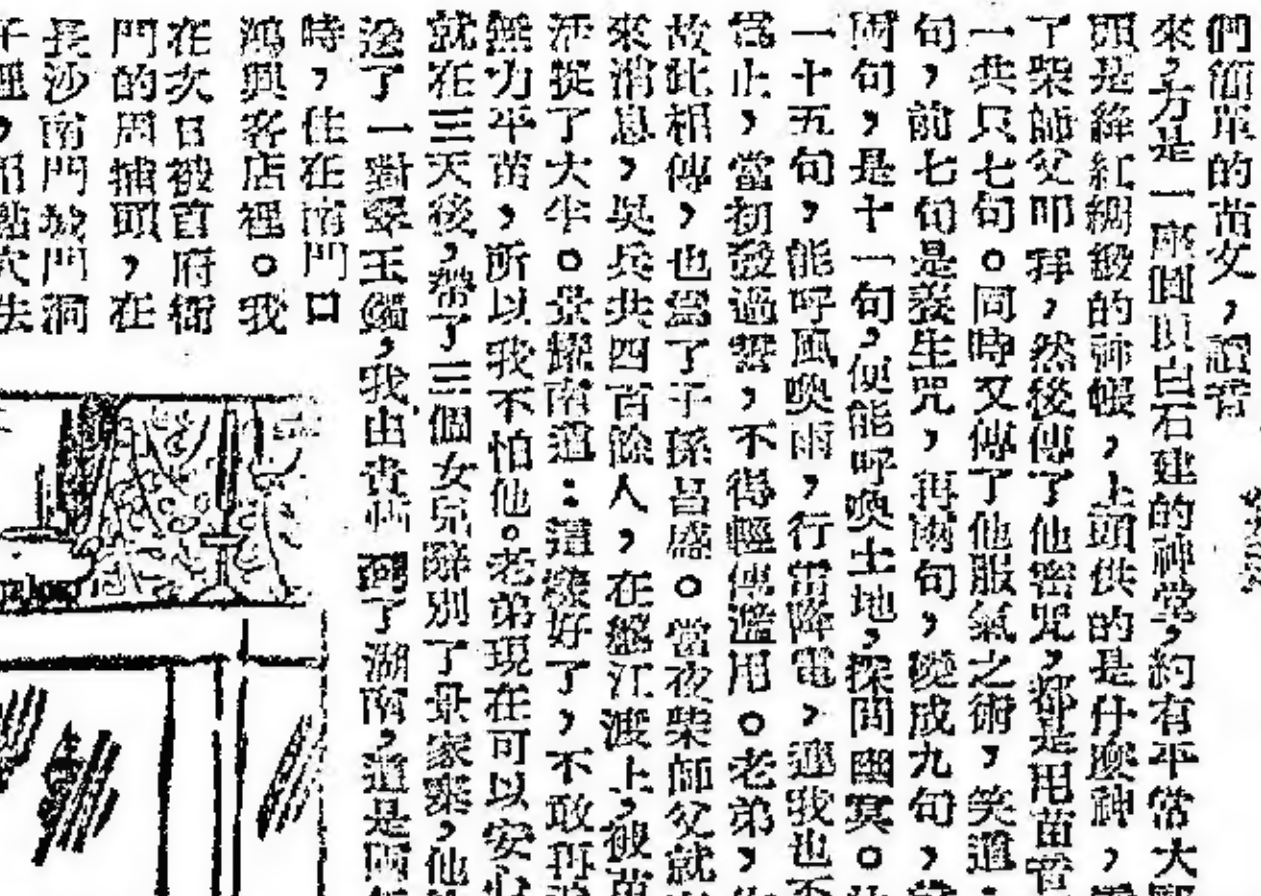 們簡單的苗文，讀音
來，方是一座圓頂白石建的神堂，約有平常大
頭是絳紅綢緞的神帳，上頭供的是什麼神，
了柴師父叩拜，然後傳了他密咒，都是用苗音
一共只七句。同時又傳了他服氣之術，笑道：
句，前七句是養生咒，再兩句，變成九句，
兩句，是十一句，便能呼喚土地，探問幽冥。
一十五句，能呼風喚雨，行雷降電，連我也不
為止，當初發過誓，不得輕傳濫用。老弟，
故此相傳，也為了子孫昌盛。當夜柴師父就
來消息，吳兵共四百餘人，在盤江渡上，被苗
活捉了大半。景耀南道：這樣好了，不敢再
無力平苗，所以我不怕他。老弟現在可以安心
就在三天後，帶了三個女兒辭別了景家寨，他
送了一對翠玉鐲，我由貴州回了湖南，道是兩
時，住在南門口
鴻興客店裡。我
在次日被首府衙
門的周捕頭，在
長沙南門城門洞
子裡，用點穴法